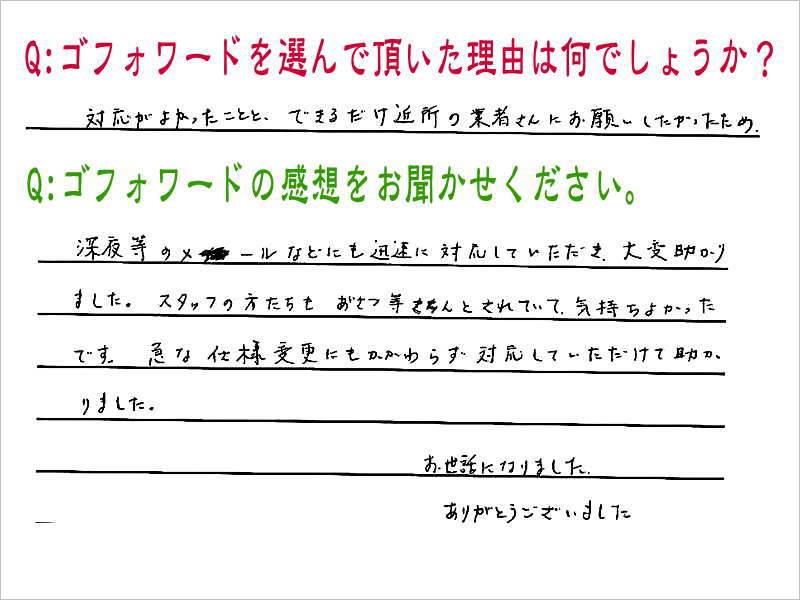 Q:ゴフォワードを選んで頂いた理由は何でしょうか?
対応がよかったことと、できるだけ近所の業者さんにお願いしたかったため.
Q:ゴフォワードの感想をお聞かせください。
深夜等のメールなどにも迅速に対応していただき、大変助かり
ました。スタッフの方たちもあいさつ等きちんとされていて、気持ちよかった
です。急な仕様変更にもかかわらず対応していただけて助か
りました。
お世話になりました.
ありがとうございました